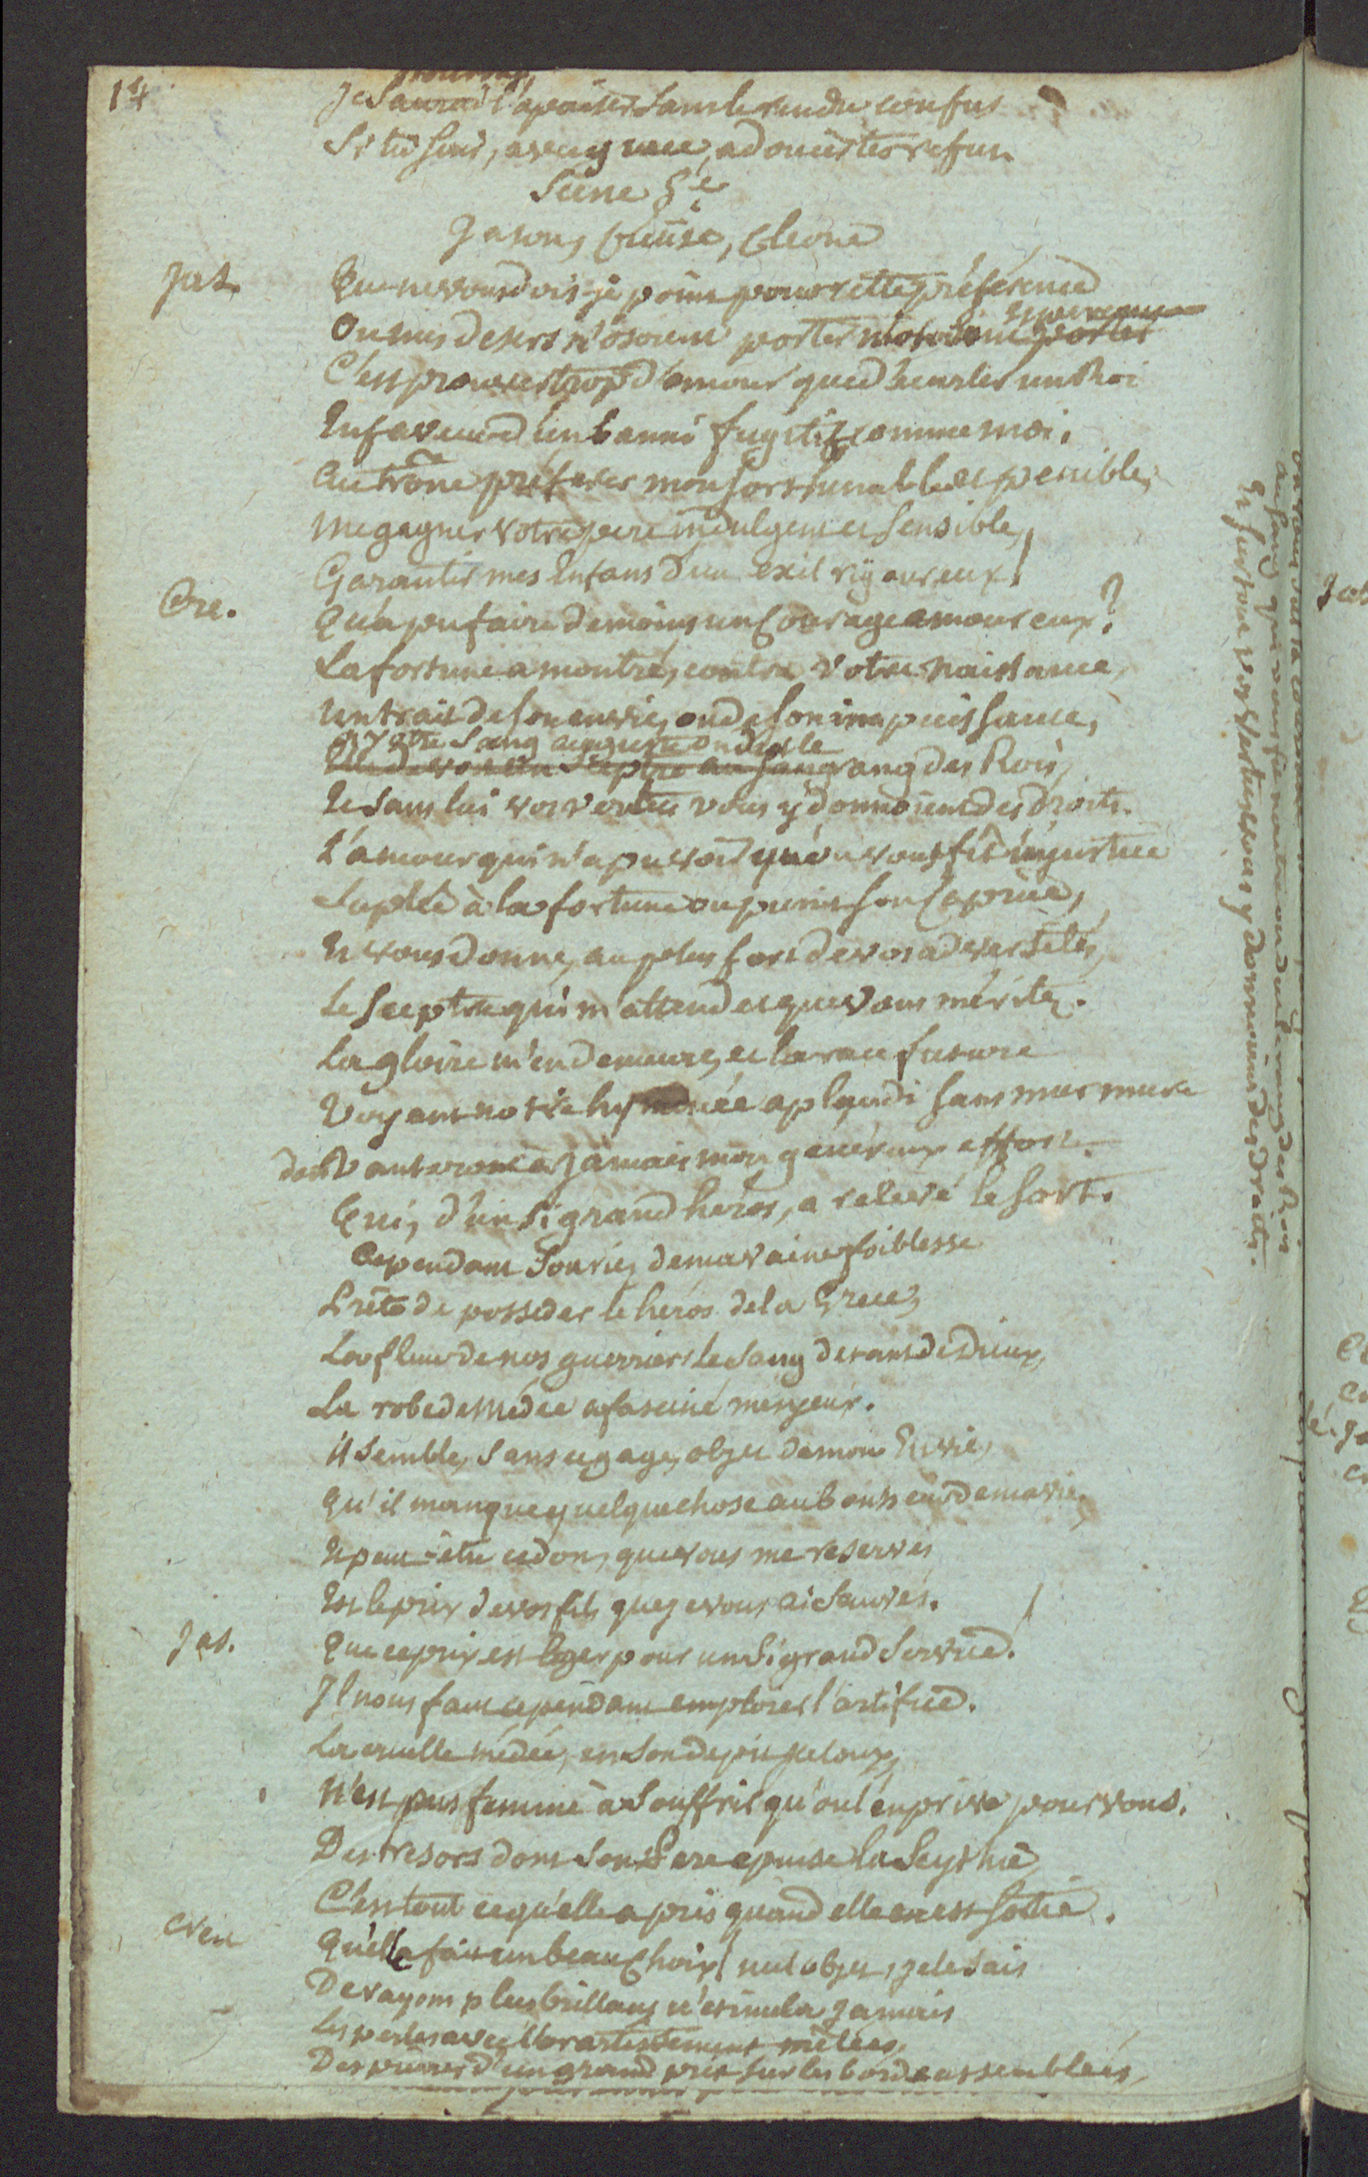 14
pourrai
Je Saurai l'apaiser sans le rendre confus
Si tu sais, avec grace, adoucir tes refus.
Scene 5e
Jason, Creüse, Cleone
Jas. Que ne vous dois-je point pour cette préférence
Ou mes desirs n'osoient porter mon
C'est prouver trop d'amour que d'heurter un Roi
En faveur d'un banni fugitif comme moi.
Au trône préferer mon sort instable et penible,
Me gagner votre pere indulgent et sensible,
Garantir mes Enfans d'un exil rigoureux!
Cre. Qu'a pu faire de moins un Courage amoureux?
La fortune a montré, contre votre naissance,
Un trait de son envie, ou de son impuissance,
Votre Sang auguste
Sceptre au rang des Rois,
Et sans lui vos vertus vous y donnoient des droits.
L'amour qui n'a pu voir qu'on vous fît injustice
Suplée à la fortune ou punit son Caprice,
Et vous donne, au plus fort de vos adversités,
Le Sceptre qui m'attend et que vous méritez.
La gloire m'en demeure, et la race future
Voyant notre hymenée aplaudi sans murmure
Vanteront à Jamais mon généreux effort.
Qui, d'un si grand heros, a relevé le sort.
Cependant Souriez de ma vaine foiblesse
Prête de posseder le héros de la Grece,
La fleur de nos guerriers le Sang de tant de Dieux,
La robe de Médée a fasciné mes yeux.
Il semble, sans ce gage, objet de mon Envie,
Qu'il manque quelque chose au bonheur de ma vie,
Et peut-être ce don, que vous me reservés
Est le prix de vos fils que je vous ai Sauvés.
Jas. Que ce prix est leger pour un si grand Service!
Il nous faut cependant employer l'artifice.
La cruelle médée, en son depit jaloux,
N'est pas femme à souffrir qu'on l'en prive pour vous.
Des tresors dont son Pere epuise la Scythie,
C'est tout ce qu'elle a pris quand elle en est sortie.
Creu Qu'elle a fait un beau Choix! nul objet, je le sais
De rayons plus brillans n'étincela Jamais
Les perles avec l'or artistement mêlées,
Des pierres d'un grand prix sur les bords assemblées,
au Sang qui vous fit naître on dut le rang des Rois
Et sur tout vos vertus vous y donnoient des droits.